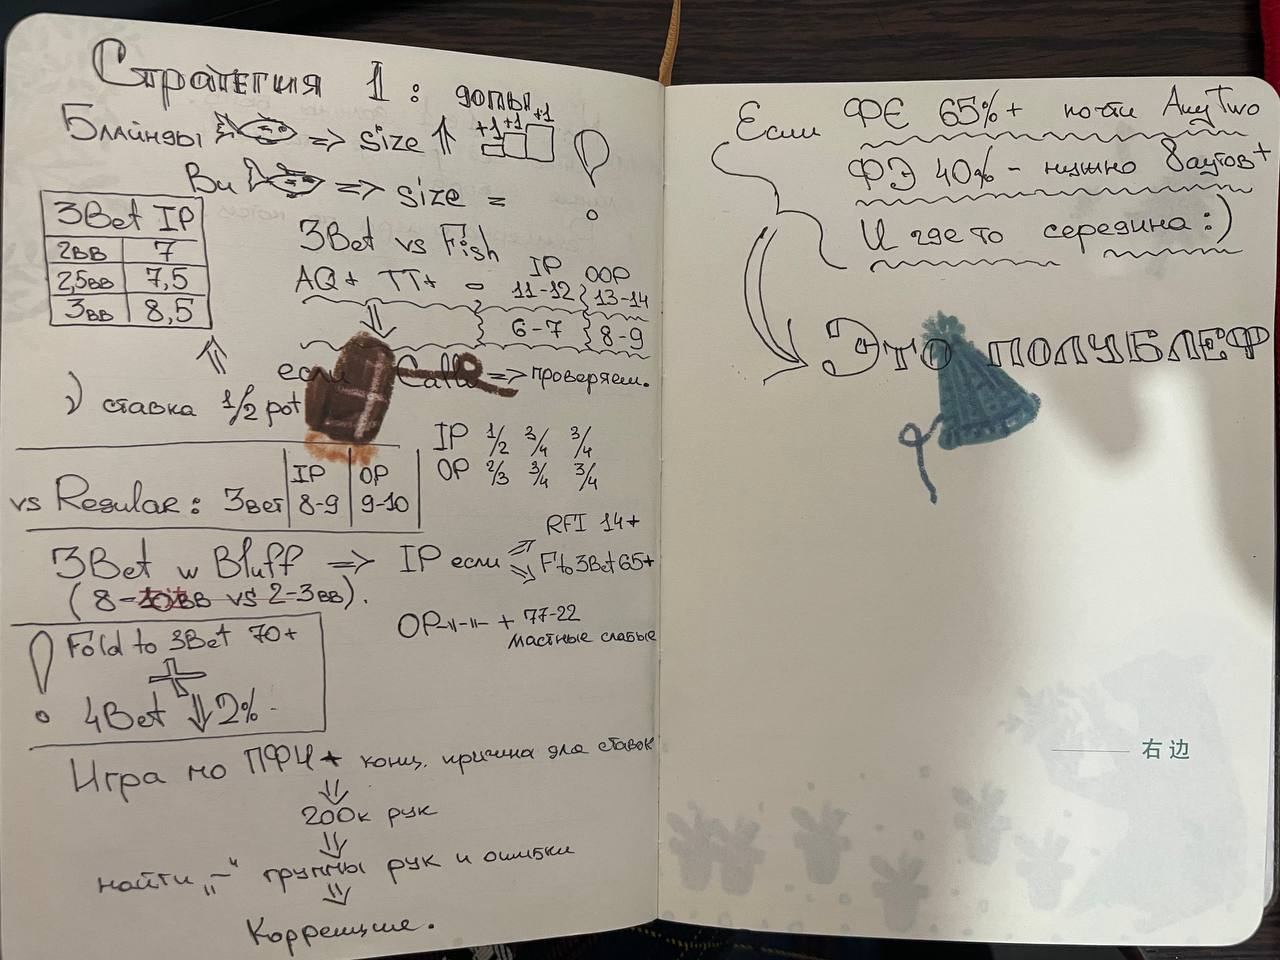 Стратегия 1: допы
Блайнды => size ⇑ +1 +1 +1 !
Вы => size =
3Bet IP
2вв 7
2,5вв 7,5
3вв 8,5
3Bet vs Fish
IP OOP
AQ+ TT+ - 11-12 13-14
6-7 8-9
если Call => проверяем.
) ставка 1/2 pot
IP 1/2 3/4 3/4
OP 2/3 3/4 3/4
IP OP
vs Regular: 3Bet 8-9 9-10
RFI 14+
3Bet w Bluff => IP если Fto3Bet65+
(8-10вв vs 2-3вв).
OP-"-"- + 77-22
мастные слабые
! Fold to 3Bet 70+
+
4Bet ⇓ 2%
Игра по ПФЧ + конц. причина для ставок
⇓
200к рук
⇓
найти „-“ группы рук и ошибки
⇓
Коррекция.
Если ФЄ 65%+ почти Any Two
ФЭ 40% - нужно 8аутов+
И где то середина :)
Это ПОЛУБЛЕФ
右边